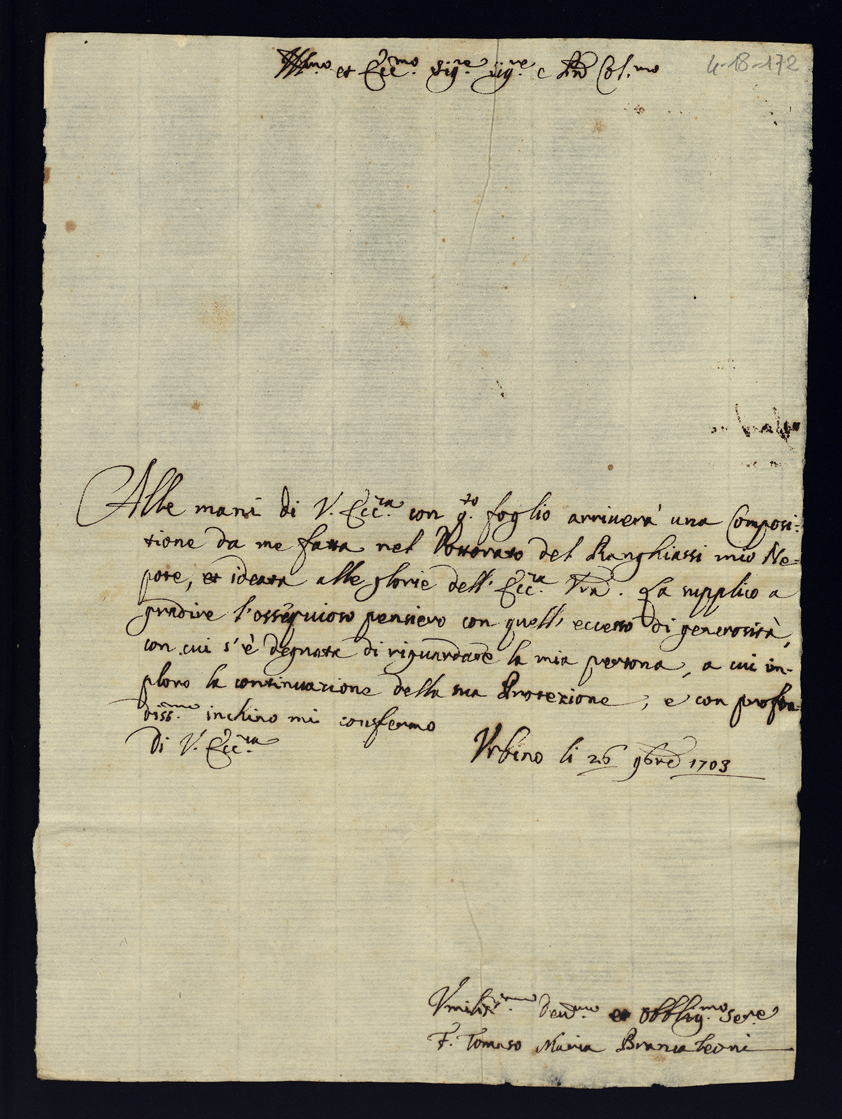 4-18-172
Ill.mo et Ecc.mo Sig.re Sig.re e Pnē Col.mo
Alle mani di V. Ecc.za con q.to foglio arriverà una Composi-
tione da me fatta nel Dottorato del Ranghiassi mio Ne-
pote, et ideata alle glorie dell' Ecc.za Vrā. La supplico a
gradire l'ossequioso pensiero con quell' eccesso di generosità,
con cui s'è degnata di riguardare la mia persona, a cui im-
ploro la continuazione della sua Protezione, e con profon-
diss.mo inchino mi confermo
di V. Ecc.za
Urbino li 26 9bre 1703
Umiliss.mo Dev.mo et Obblig.mo Ser.e
F. Tomaso Maria Brancaleoni